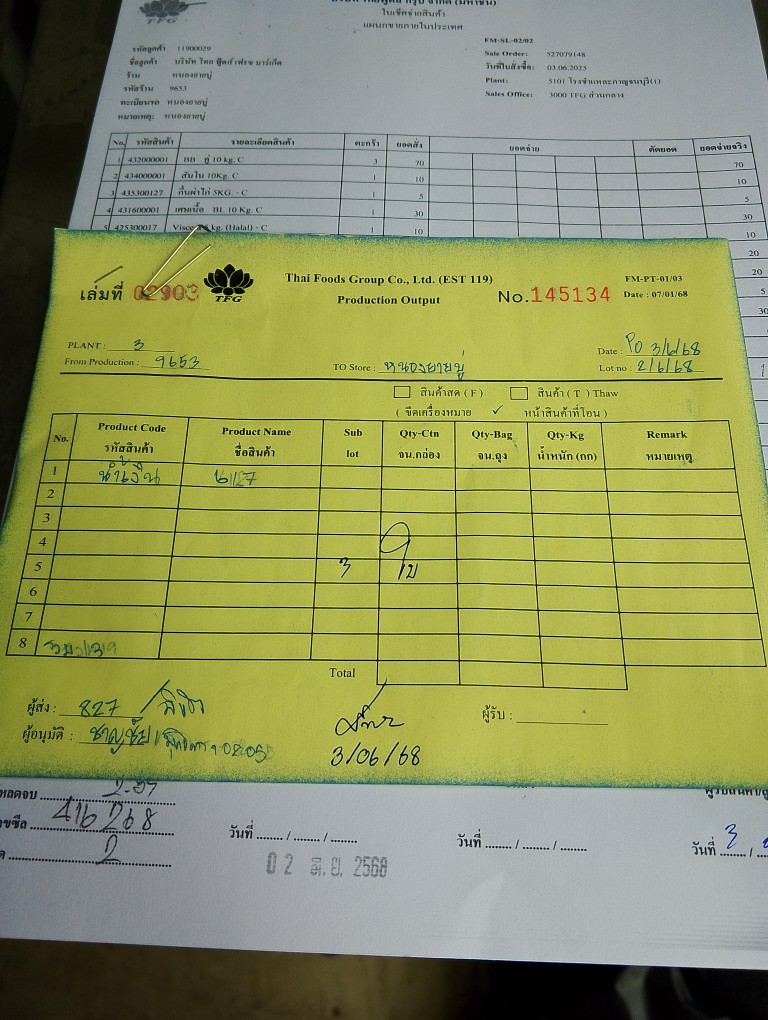 ใบเช็คจ่ายสินค้า
TFG
แผนกขายภายในประเทศ
FM-SL-02/02
รหัสลูกค้า 11900029
Sale Order: 527079148
ชื่อลูกค้า บริษัท ไทย ฟู้ดส์ เฟรช มาร์เก็ต
วันที่ใบสั่งซื้อ: 03.06.2025
ร้าน หนองยายบู่
Plant: 5101 โรงชำแหละกาญจนบุรี(1)
รหัสร้าน 9653
Sales Office: 3000 TFG ส่วนกลาง
ทะเบียนรถ หนองยายบู่
หมายเหตุ: หนองยายบู่
No. รหัสสินค้า รายละเอียดสินค้า ตะกร้า ยอดสั่ง ยอดจ่าย ตัดยอด ยอดจ่ายจริง
1 432000001 BB คู่ 10 kg. C 3 70 70
2 434000001 สันใน 10Kg. C 1 10 10
3 435300127 กึ๋นผ่าไก่ 5KG. - C 1 5 5
4 431600001 เศษเนื้อ BL 10 Kg. C 1 30 30
5 425300017 kg. (Halal) - C 1 10 10
20
20
5
30
เล่มที่ 02903
TFG
Thai Foods Group Co., Ltd. (EST 119)
Production Output
No.145134
FM-PT-01/03
Date : 07/01/68
PLANT : 3
Date : PO 3/6/68
From Production : 9653
TO Store : หนองยายบู่
Lot no : 2/6/68
สินค้าสด ( F ) สินค้า ( T ) Thaw
( ขีดเครื่องหมาย ✓ หน้าสินค้าที่โอน )
No. Product Code Product Name Sub Qty-Ctn Qty-Bag Qty-Kg Remark
รหัสสินค้า ชื่อสินค้า lot จน.กล่อง จน.ถุง น้ำหนัก (กก) หมายเหตุ
1 น้ำเงิน
2
3
4
5 3 ใบ
6
7
8
Total
ผู้ส่ง : 827
ผู้รับ :
ผู้อนุมัติ : ชาญชัย
3/06/68
416268
2
วันที่ ........ / ....... / .......
วันที่ ........ / ....... / .......
วันที่ 3
02 มิ.ย. 2568